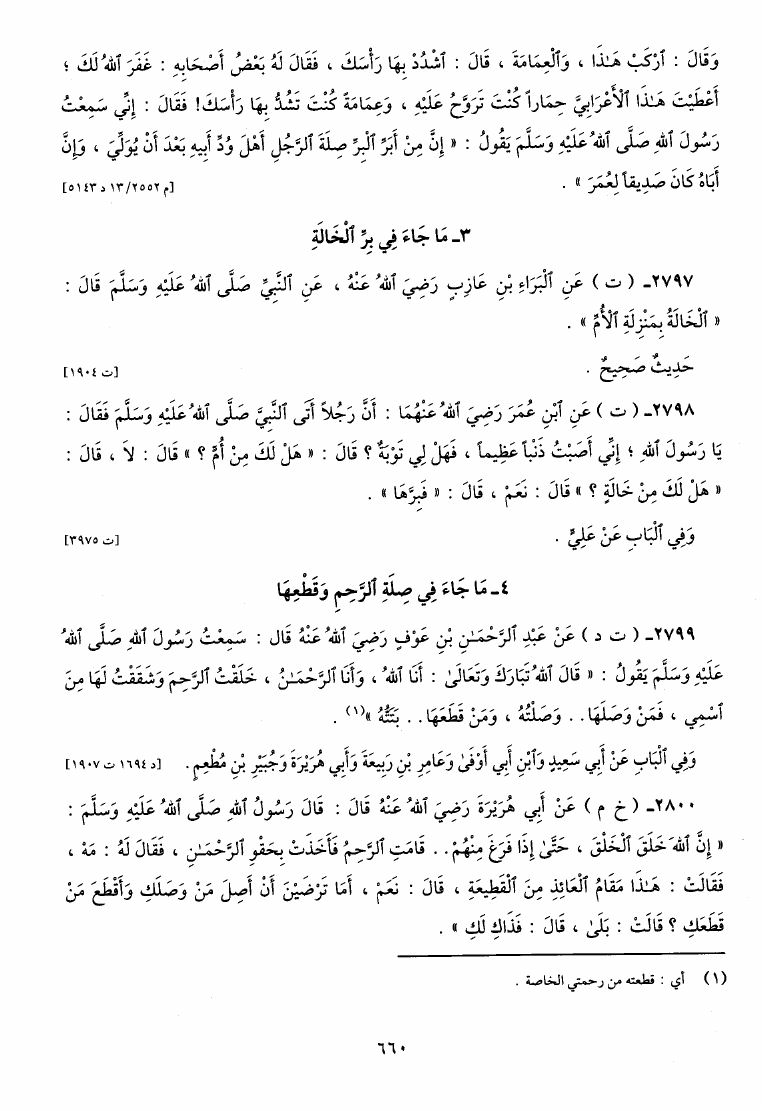 وَقَالَ : ٱرْكَبْ هَـٰذَا ، وَٱلْعِمَامَةَ ، قَالَ : ٱشْدُدْ بِهَا رَأْسَكَ ، فَقَالَ لَهُ بَعْضُ أَصْحَابِهِ : غَفَرَ ٱللهُ لَكَ ؛
أَعْطَيْتَ هَـٰذَا ٱلأَعْرَابِيَّ حِمَاراً كُنْتَ تَرَوَّحُ عَلَيْهِ ، وَعِمَامَةً كُنْتَ تَشُدُّ بِهَا رَأْسَكَ! فَقَالَ : إِنِّي سَمِعْتُ
رَسُولَ ٱللهِ صَلَّى ٱللهُ عَلَيْهِ وَسَلَّمَ يَقُولُ : « إِنَّ مِنْ أَبَرِّ ٱلْبِرِّ صِلَةَ ٱلرَّجُلِ أَهْلَ وُدِّ أَبِيهِ بَعْدَ أَنْ يُوَلِّيَ ، وَإِنَّ
أَبَاهُ كَانَ صَدِيقاً لِعُمَرَ » . [م ٢٥٥٢/ ١٣ د ٥١٤٣]
٣ـ مَا جَاءَ فِي بِرِّ ٱلْخَالَةِ
٢٧٩٧ـ ( ت ) عَنِ ٱلْبَرَاءِ بْنِ عَازِبٍ رَضِيَ ٱللهُ عَنْهُ ، عَنِ ٱلنَّبِيِّ صَلَّى ٱللهُ عَلَيْهِ وَسَلَّمَ قَالَ :
« ٱلْخَالَةُ بِمَنْزِلَةِ ٱلأُمِّ » .
حَدِيثٌ صَحِيحٌ . [ت ١٩٠٤]
٢٧٩٨ـ ( ت ) عَنِ ٱبْنِ عُمَرَ رَضِيَ ٱللهُ عَنْهُمَا : أَنَّ رَجُلاً أَتَى ٱلنَّبِيَّ صَلَّى ٱللهُ عَلَيْهِ وَسَلَّمَ فَقَالَ :
يَا رَسُولَ ٱللهِ ؛ إِنِّي أَصَبْتُ ذَنْباً عَظِيماً ، فَهَلْ لِي تَوْبَةٌ ؟ قَالَ : « هَلْ لَكَ مِنْ أُمٍّ ؟ » قَالَ : لاَ ، قَالَ :
« هَلْ لَكَ مِنْ خَالَةٍ ؟ » قَالَ : نَعَمْ ، قَالَ : « فَبِرَّهَا » .
وَفِي ٱلْبَابِ عَنْ عَلِيٍّ . [ت ٣٩٧٥]
٤ـ مَا جَاءَ فِي صِلَةِ ٱلرَّحِمِ وَقَطْعِهَا
٢٧٩٩ـ ( ت د ) عَنْ عَبْدِ ٱلرَّحْمَـٰنِ بْنِ عَوْفٍ رَضِيَ ٱللهُ عَنْهُ قال : سَمِعْتُ رَسُولَ ٱللهِ صَلَّى ٱللهُ
عَلَيْهِ وَسَلَّمَ يَقُولُ : « قَالَ ٱللهُ تَبَارَكَ وَتَعَالَىٰ : أَنَا ٱللهُ ، وَأَنَا ٱلرَّحْمَـٰنُ ، خَلَقْتُ ٱلرَّحِمَ وَشَقَقْتُ لَهَا مِنَ
ٱسْمِي ، فَمَنْ وَصَلَهَا.. وَصَلْتُهُ ، وَمَنْ قَطَعَهَا.. بَتَتُّهُ »(١) .
وَفِي ٱلْبَابِ عَنْ أَبِي سَعِيدٍ وَٱبْنِ أَبِي أَوْفَىٰ وَعَامِرِ بْنِ رَبِيعَةَ وَأَبِي هُرَيْرَةَ وَجُبَيْرِ بْنِ مُطْعِمٍ. [د ١٦٩٤ ت ١٩٠٧]
٢٨٠٠ـ ( خ م ) عَنْ أَبِي هُرَيْرَةَ رَضِيَ ٱللهُ عَنْهُ قَالَ : قَالَ رَسُولُ ٱللهِ صَلَّى ٱللهُ عَلَيْهِ وَسَلَّمَ :
« إِنَّ ٱللهَ خَلَقَ ٱلْخَلْقَ ، حَتَّىٰ إِذَا فَرَغَ مِنْهُمْ.. قَامَتِ ٱلرَّحِمُ فَأَخَذَتْ بِحَقْوِ ٱلرَّحْمَـٰنِ ، فَقَالَ لَهُ : مَهْ ،
فَقَالَتْ : هَـٰذَا مَقَامُ ٱلْعَائِذِ مِنَ ٱلْقَطِيعَةِ ، قَالَ : نَعَمْ ، أَمَا تَرْضَيْنَ أَنْ أَصِلَ مَنْ وَصَلَكِ وَأَقْطَعَ مَنْ
قَطَعَكِ ؟ قَالَتْ : بَلَىٰ ، قَالَ : فَذَاكِ لَكِ » .
(١) أي : قطعته من رحمتي الخاصة .
٦٦٠